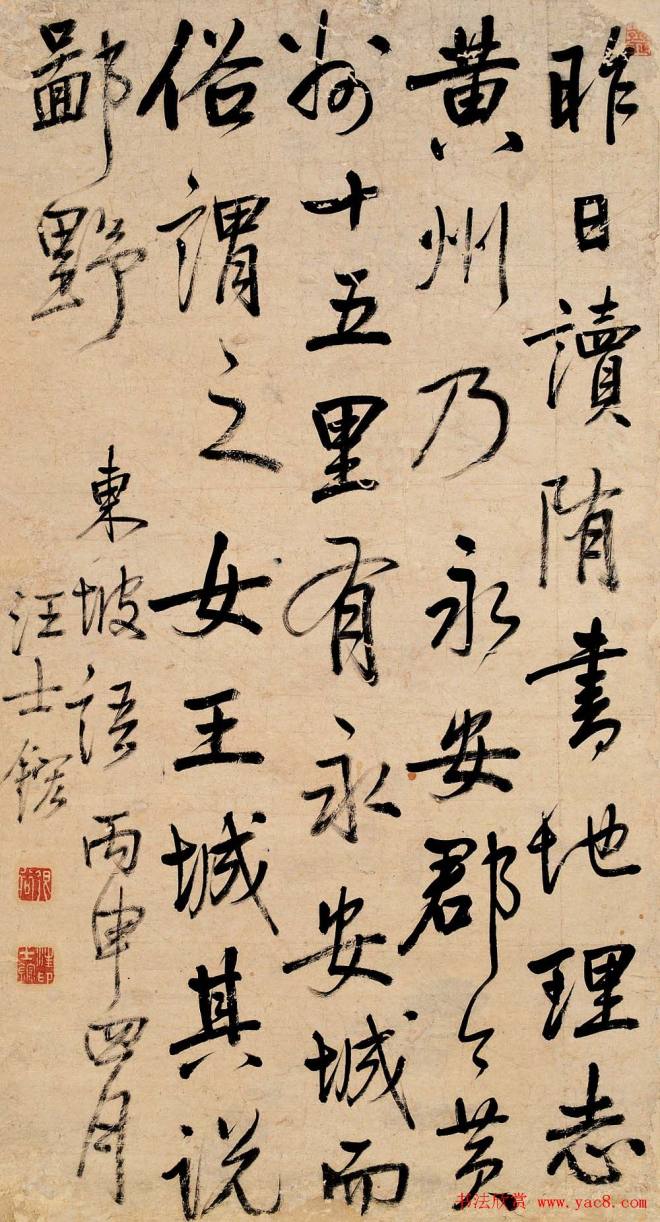 昨日讀隋書地理志
黄州乃永安郡今黄
州十五里有永安城而
俗謂之女王城其説
鄙野
東坡語丙申四月
汪士鋐
书法欣赏 www.yac8.com